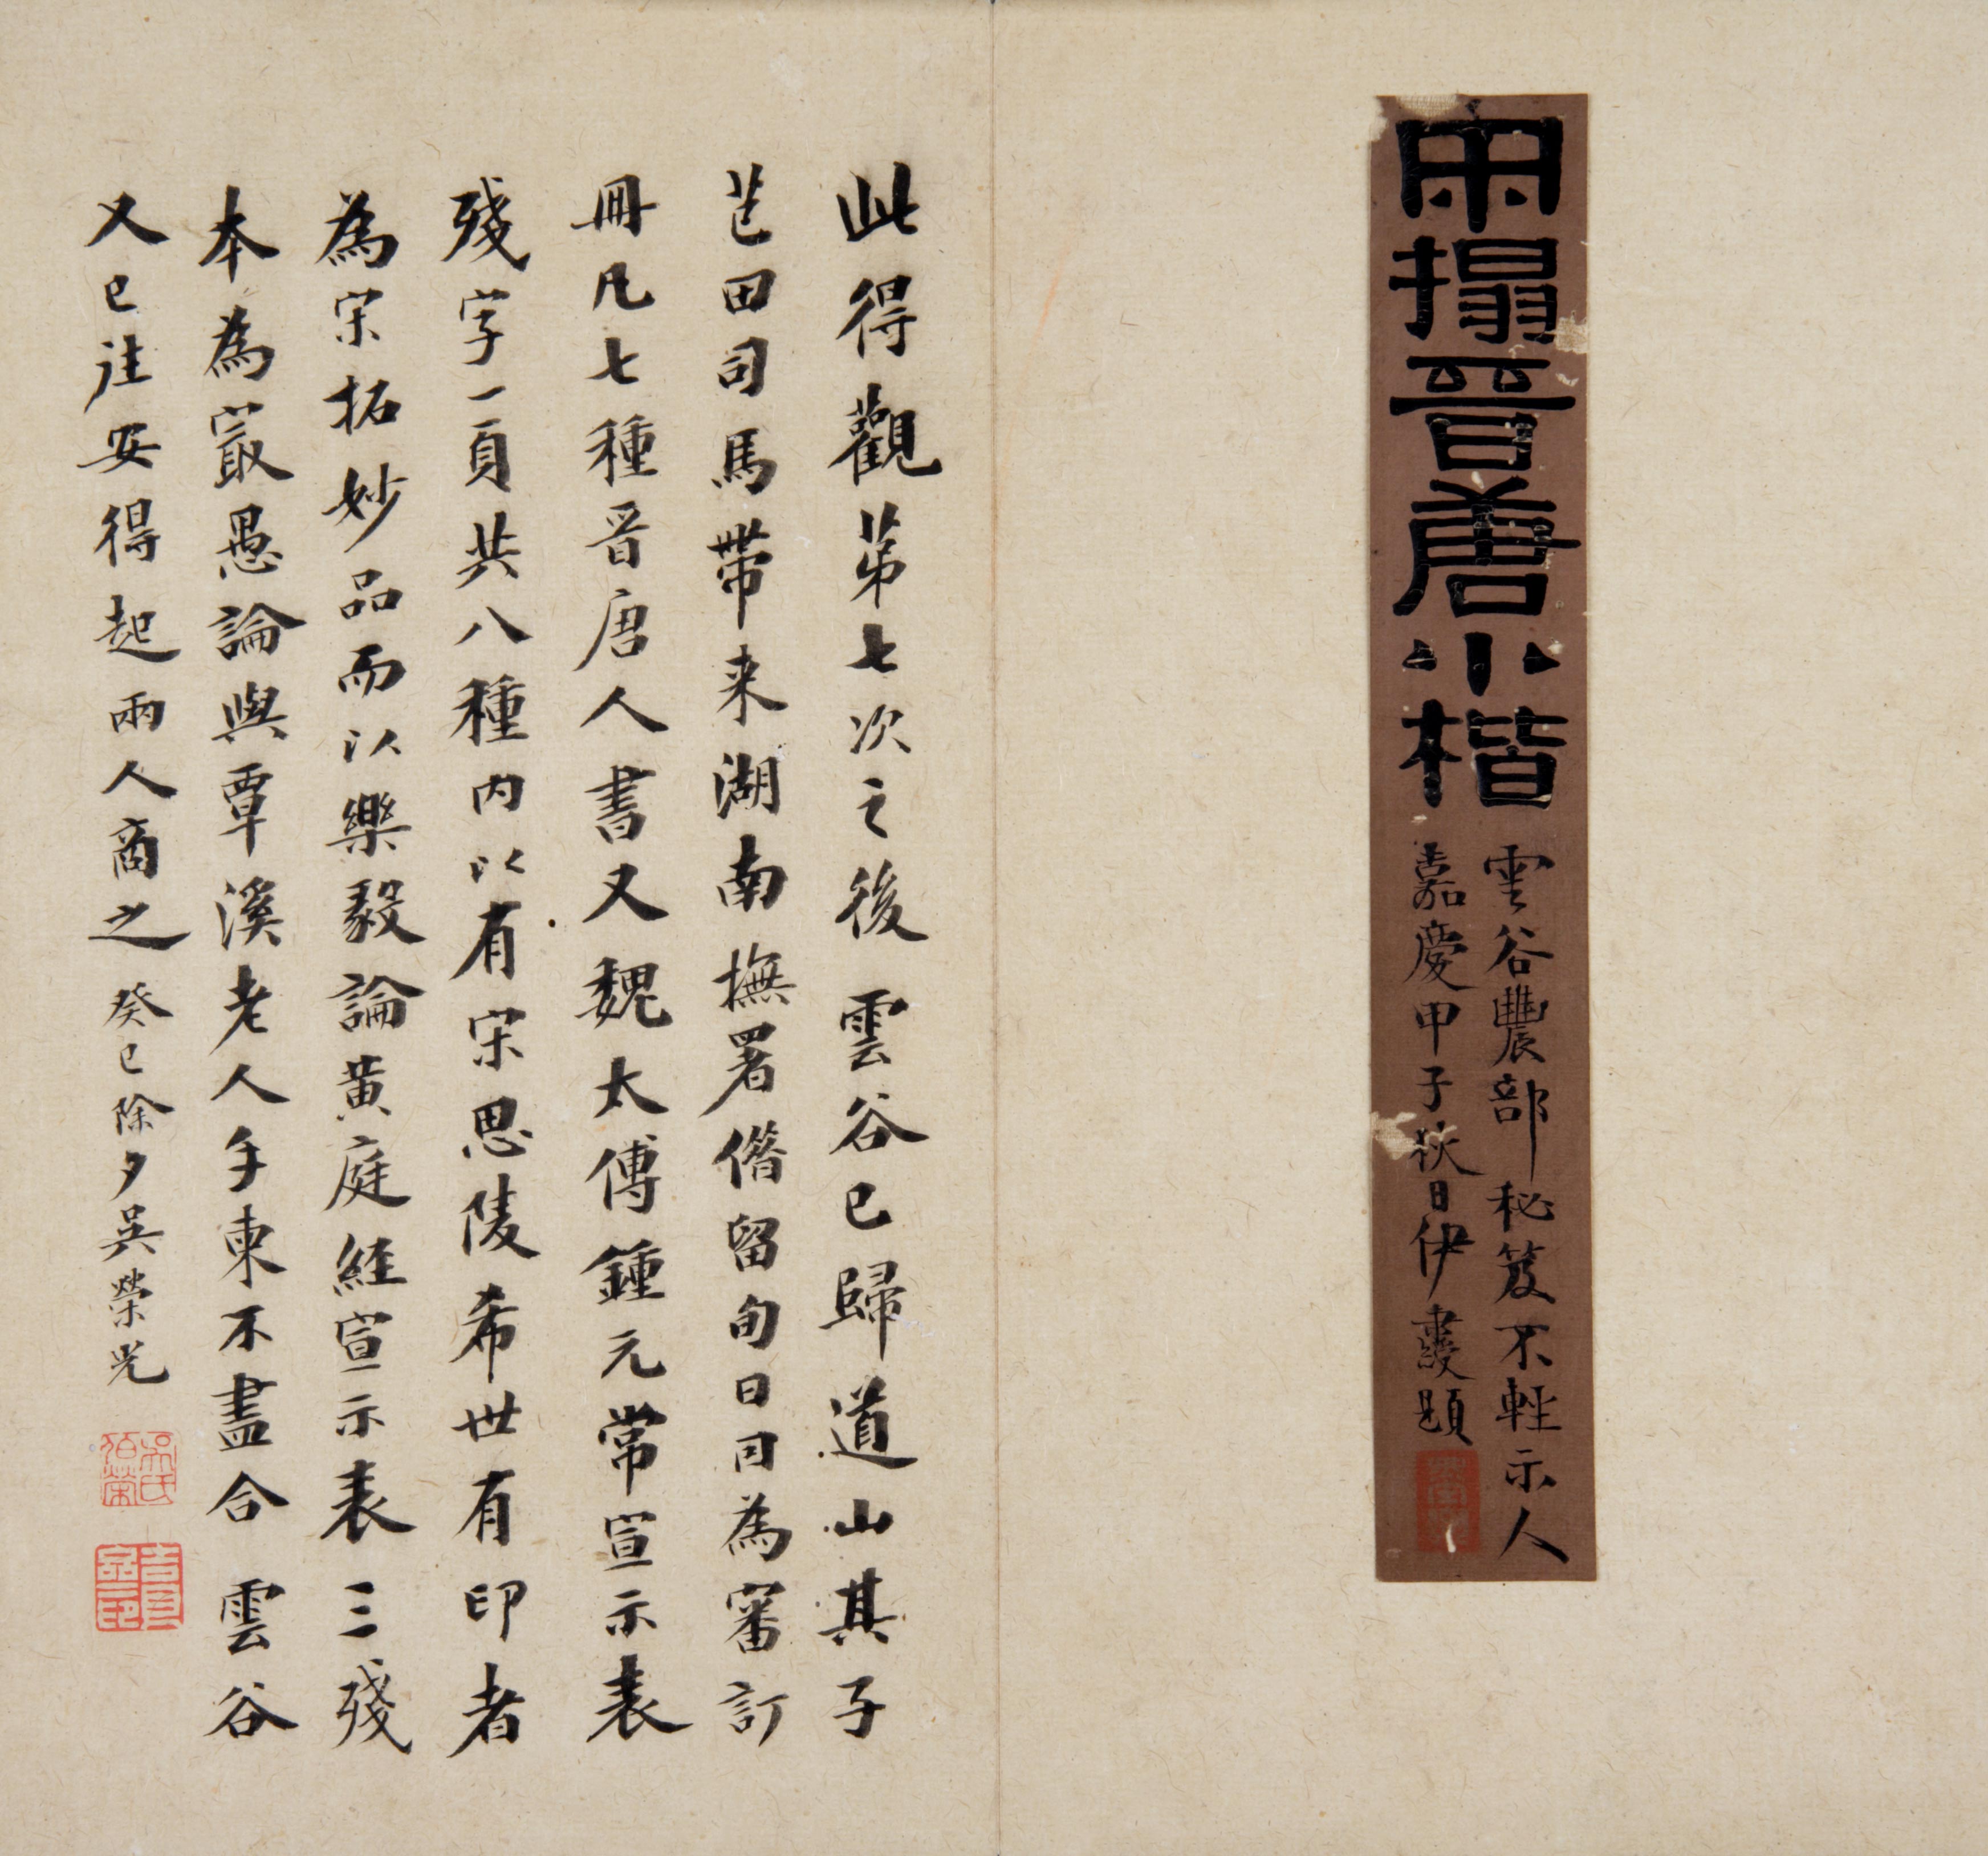 宋搨晉唐小楷
雲谷農部秘笈不輕示人
嘉慶甲子秋日伊秉綬題
此得觀苐七次之後雲谷已歸道山其子
芑田司馬帶来湖南撫署僭留旬日因為審訂
冊凡七種晋唐人書又魏太傅鍾元常宣示表
殘字一頁共八種内以有宋思陵希世有印者
為宋拓妙品而以樂毅論黄庭經宣示表三殘
本為冣愚論與覃溪老人手柬不盡合雲谷
又已往安得起兩人商之癸巳除夕吳榮光